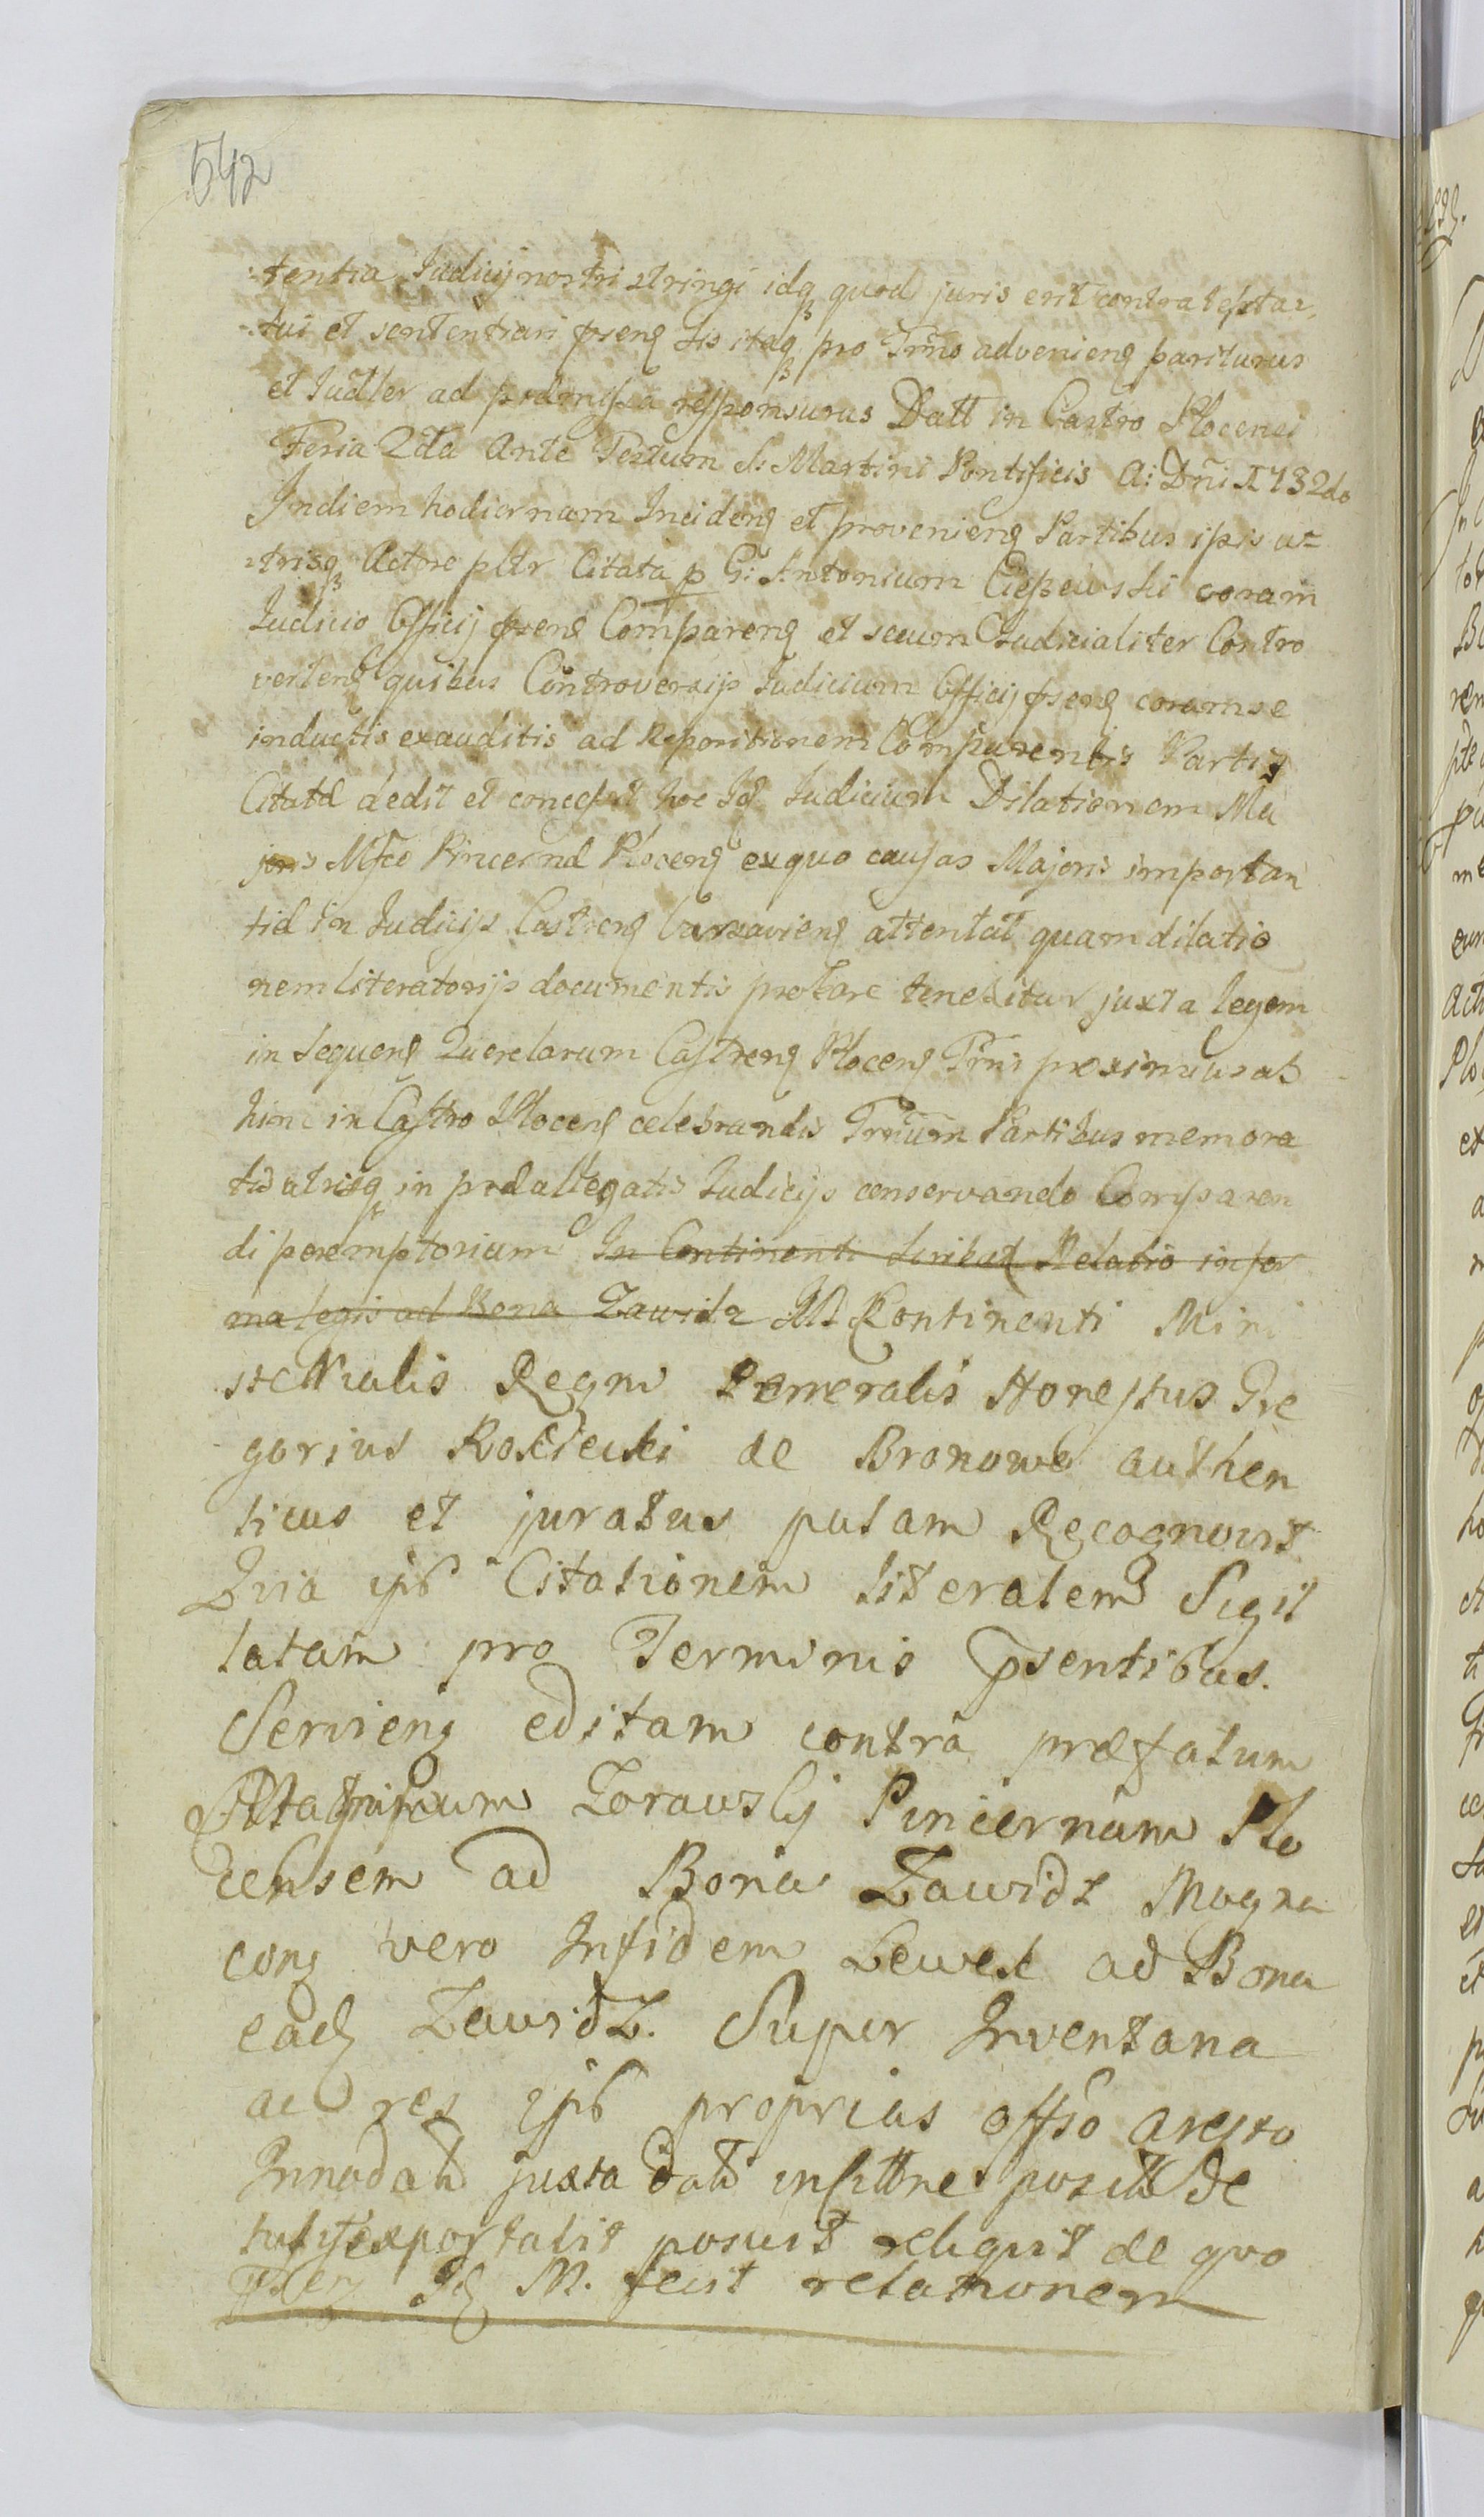 542
tentia Judicij nostri stringi idq quod juris erit contra te statu
tui et sententiari psens sis itaq pro Trno advenieng pariturus
et Judtler ad praemissa responsurus Datt in Castro Plocensi
Feria 2da Ante Festum S: Martini Pontificis A: Dni 1732do
In diem hodiernam Incideng et provenieng Partibus ipis u=
trisq Actore pltr Citata p G: Antonium Ciepewski coram
Judicio Officij pseng Compareng et secum Judicialiter Contro
verteng quibus Controversijs Judicium Officij pseng coram se
inductis exauditis ad Repositionem Comparentis Partis
Citatae dedit et concessit hoc Id Judicium Dilationem Ma
joris Mfco Pincernae Ploceng ex quo causas Majoris importan
tiae in Judicijs Castreng Varsavieng attentat quam dilatio
nem literatorijs documentis probare tenebitur juxta legem
in Sequeng Querelarum Castreng Ploceng Trnis proximius ab
hinc in Castro Ploceng celebrandis Trnum Partibus memora
tis utrisq in praeallegatis Judicijs conservando Comparen
di peremptorium In Continenti Scribat Relatio in for
ma legis ad Bona Zawidz In Continenti Mini
sterialis Regni Generalis Honestus Gre
gorius Rościeski de Bronowo authen
ticus et juratus putam Recognovit
Quia ips Citationem literatem Sigil
latam pro Terminis psentibus.
Servieng editam contra praefatum
Magnificum Zorawskj Pincernam Plo
censem ad Bona Zawidz Magna
cong vero Infidem ad Bona
ead Zawidz. Super Inventana
ac res ips proprias offso aresto
Innodat juxta dat posit de
posuit reliquit de quo
pseng Id M. fecit relationem